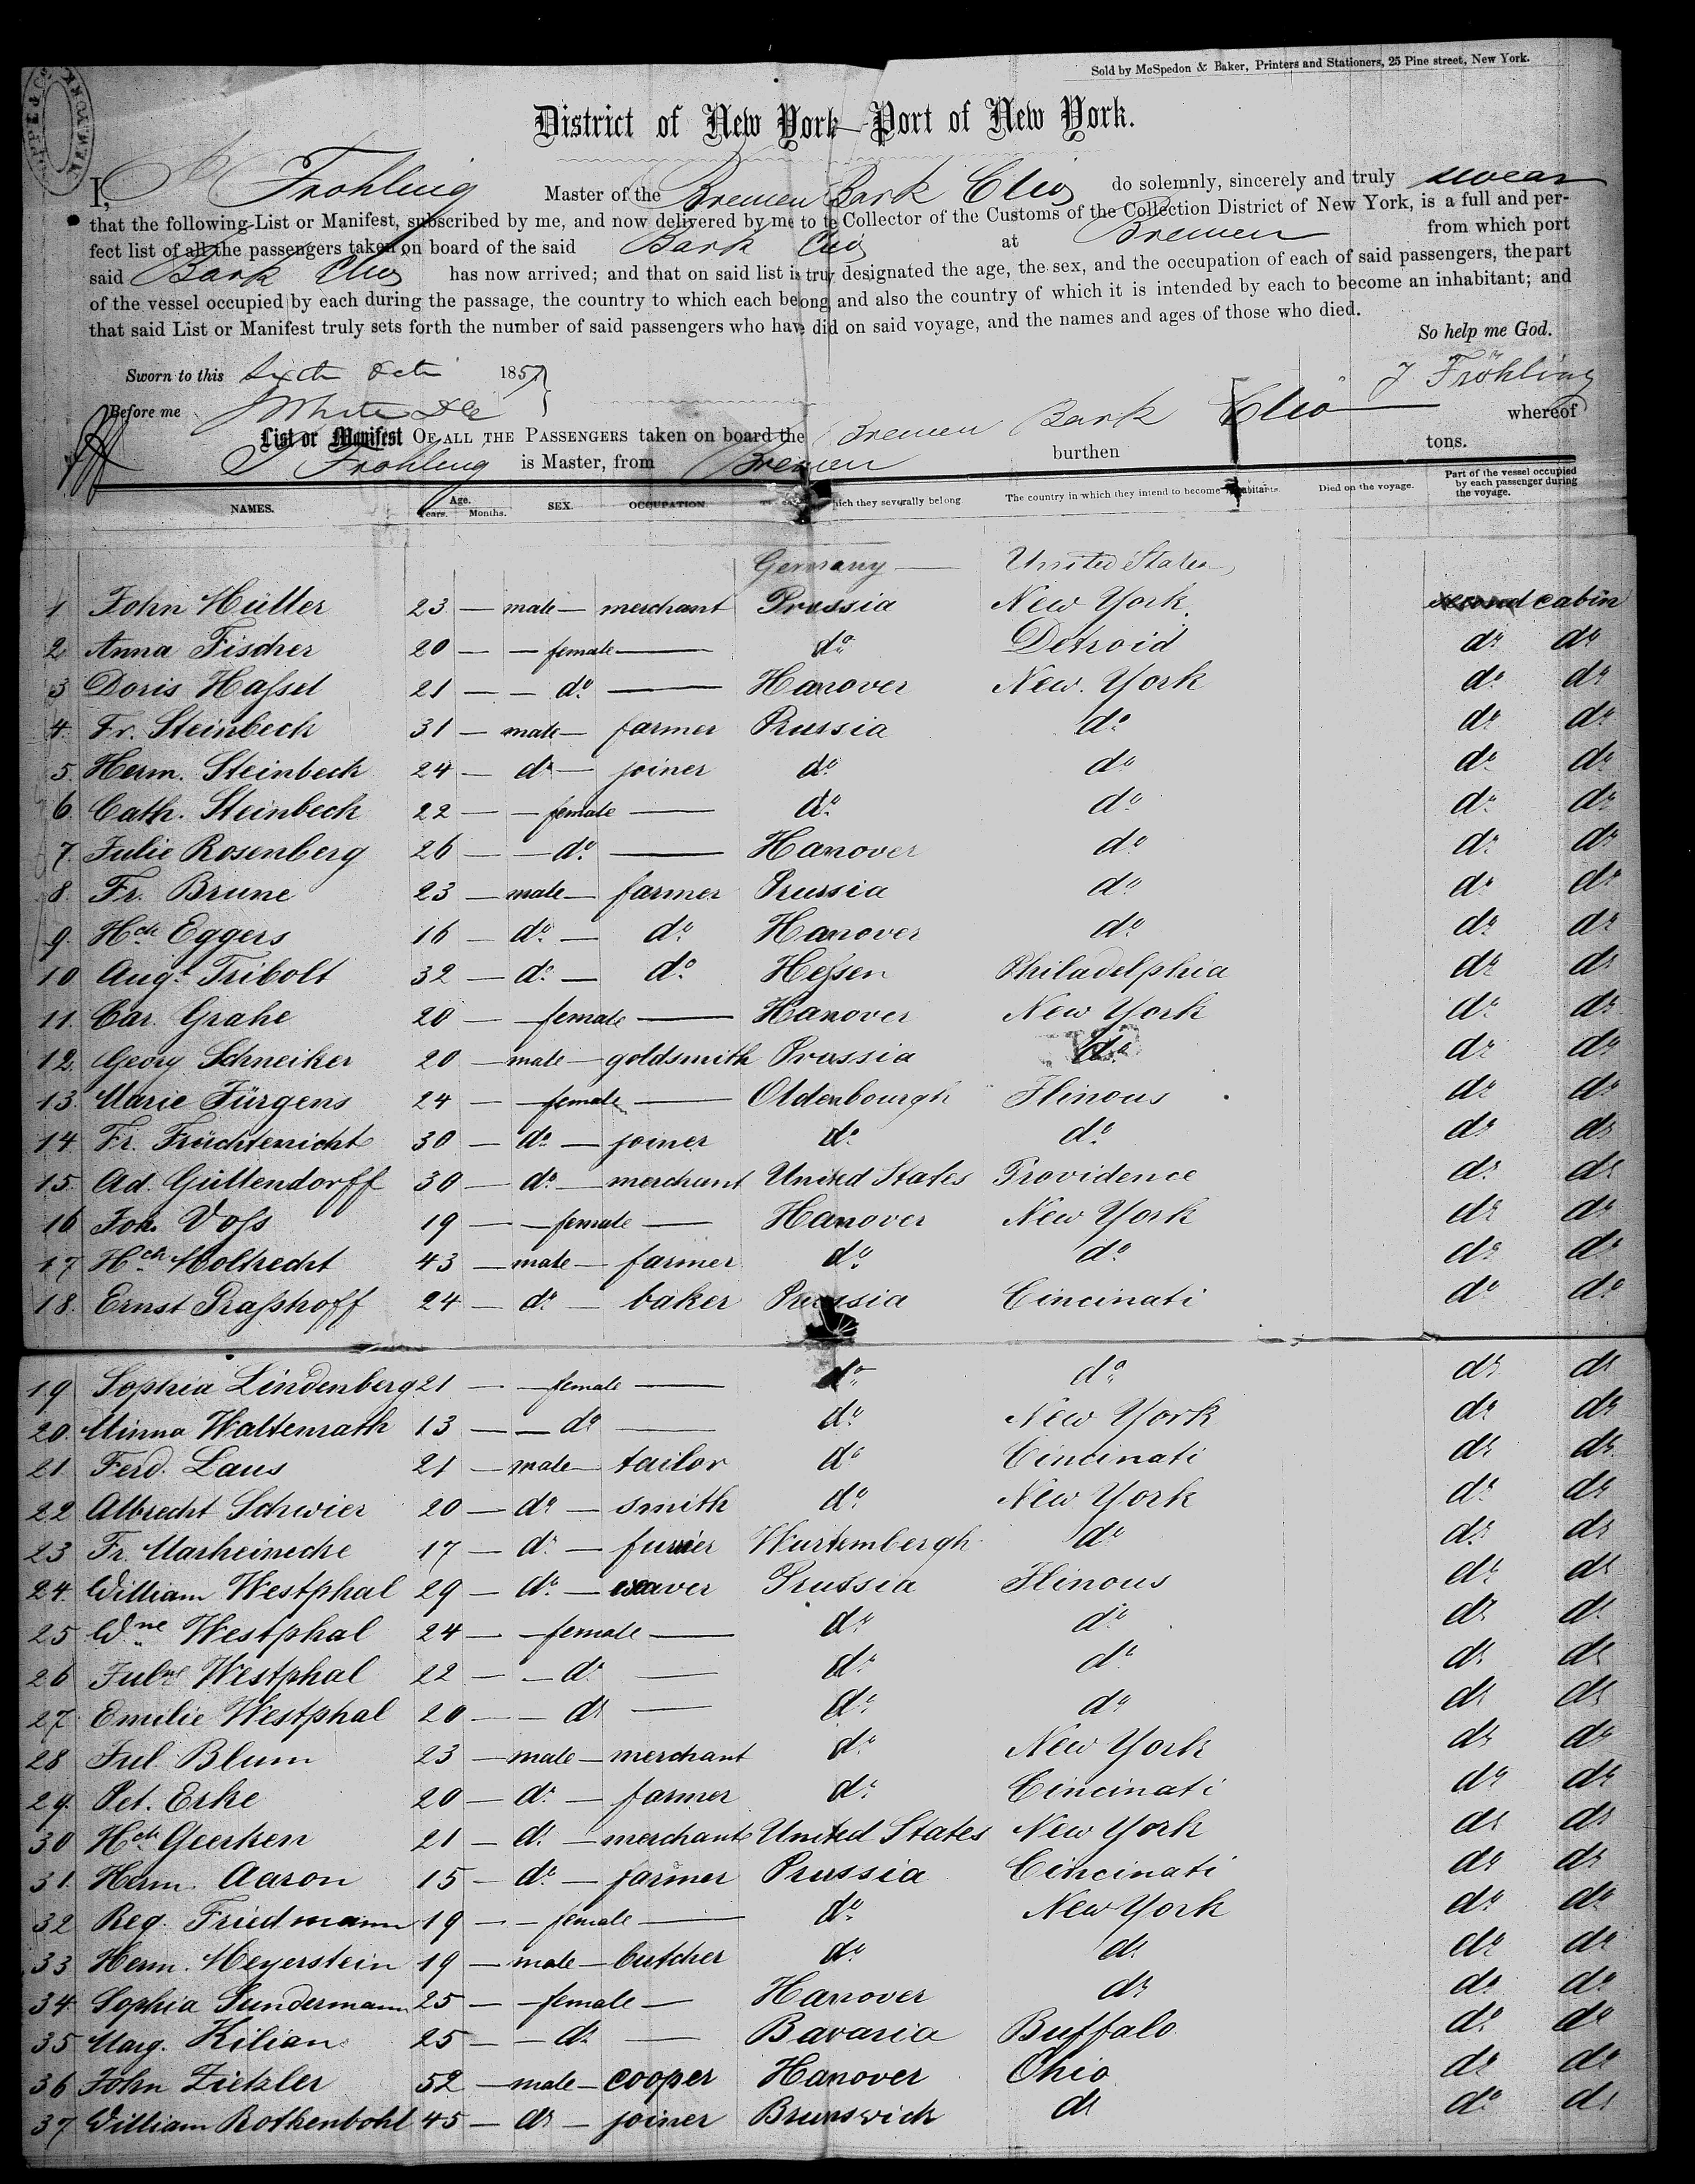 Sold by McSpedon & Baker, Printers and Stationers, 25 Pine street, New York.
District of New York—Port of New York.
I, J Frohling Master of the Bremen Bark Clio do solemnly, sincerely and truly swear
that the following List or Manifest, subscribed by me, and now delivered by me to te Collector of the Customs of the Collection District of New York, is a full and per-
fect list of all the passengers taken on board of the said Bark Clio at Bremen from which port
said Bark Clio has now arrived; and that on said list is truly designated the age, the sex, and the occupation of each of said passengers, the part
of the vessel occupied by each during the passage, the country to which each belong, and also the country of which it is intended by each to become an inhabitant; and
that said List or Manifest truly sets forth the number of said passengers who have did on said voyage, and the names and ages of those who died.
So help me God.
Sworn to this sixth Oct 1857 J Fröhling
Before me
List or Manifest OF ALL THE PASSENGERS taken on board the Bremen Bark Clio whereof
J Frohling is Master, from Bremen burthen tons.
NAMES. Age. Years. Months. SEX. OCCUPATION which they severally belong. The country in which they intend to become inhabitants. Died on the voyage. Part of the vessel occupied by each passenger during the voyage.
Germany — United States,
1 John Hütter 23 — male — merchant Prussia New York. second cabin
2 Anna Fischer 20 — — female — do Detroid do do
3 Doris Haſsel 21 — — do — Hanover New York do do
4. Fr. Steinbeck 31 — male — farmer Prussia do do do
5. Herm. Steinbeck 24 — do — joiner do do do do
6. Cath. Steinbeck 22 — — female — do do do do
7. Julie Rosenberg 26 — — do — Hanover do do do
8. Fr. Brune 23 — male — farmer Prussia do do do
9. Hch Eggers 16 — do — do Hanover do do do
10 Augt Tribolt 32 — do — do Heſsen Philadelphia do do
11. Car. Grahe 20 — — female — Hanover New York do do
12. Georg Schneiker 20 — male — goldsmith Prussia do do do
13. Marie Jürgens 24 — — female — Oldenbourgh Ilinous do do
14. Fr. Früchtenicht 30 — do — joiner do do do do
15. Ad. Güttendorff 30 — do — merchant United States Providence do do
16 Joh. Voſs 19 — — female — Hanover New York do do
17 Hch Moltrecht 43 — male — farmer do do do do
18. Ernst Graſshoff 24 — do — baker Prussia Cincinati do do
19 Sophia Lindenberg 21 — — female — do do do do
20. Minna Waltenrath 13 — — do — do New York do do
21 Ferd. Laus 21 — male — tailor do Cincinati do do
22 Albrecht Schwier 20 — do — smith do New York do do
23 Fr. Marheinecke 17 — do — furrier Wurtembergh do do do
24. William Westphal 29 — do — weaver Prussia Ilinous do do
25 Wne Westphal 24 — — female — do do do do
26 Julne Westphal 22 — — do — do do do do
27 Emilie Westphal 20 — — do — do do do do
28 Jul. Blum 23 — male — merchant do New York do do
29. Pet. Erke 20 — do — farmer do Cincinati do do
30 Hch Geerken 21 — do — merchant United States New York do do
31. Herm. Aaron 15 — do — farmer Prussia Cincinati do do
32 Reg. Friedmann 19 — — female — do New York do do
33 Herm. Meyerstein 19 — male — butcher do do do do
34. Sophia Sundermann 25 — — female — Hanover do do do
35 Marg. Kilian 25 — — do — Bavaria Buffalo do do
36 John Zietzler 52 — male — cooper Hanover Ohio do do
37 William Rothenbohl 45 — do — joiner Brunswick do do do